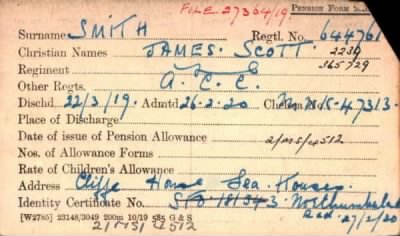 FILE. 27364/19. PENSION FORM
Surname SMITH Regtl. No. 644761
Christian Names JAMES. SCOTT. 2239
Regiment 365729
Other Regts. A. C. C.
Dischd. 22/3/19. Admtd 26.2.20 Chelsea No. 47313.
Place of Discharge
Date of issue of Pension Allowance 2/MS/4512
Nos. of Allowance Forms
Rate of Children's Allowance
Address Cliffe House Sea Houses
Identity Certificate No. 181343. Northumberland
[W2785] 23148/3049 200m 10/19 585 G & S 27/2/20